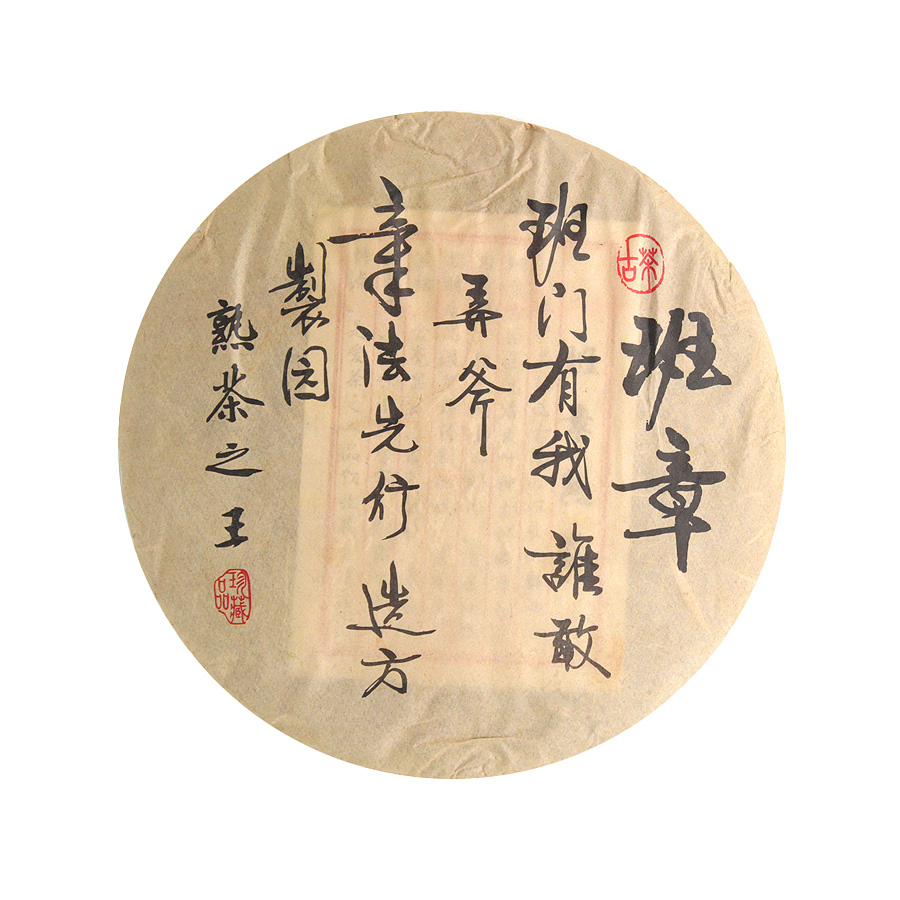 班章
古茶
班门有我誰敢
弄斧
章法先行造方
製园
熟茶之王
珍藏品